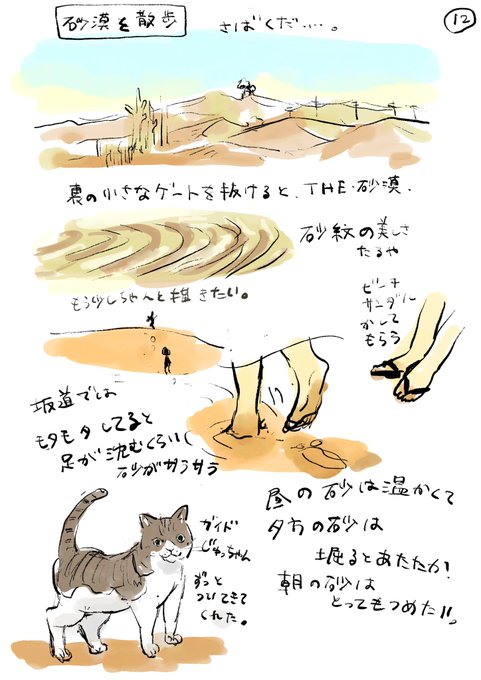 砂漠を散歩
さばくだ……。
12
裏の小さなゲートを抜けると、THE・砂漠.
砂紋の美しさ
たるや
もう少しちゃんと描きたい。
ビーチ
サンダル
かして
もらう
坂道では
モタモタしてると
足が沈むくらいに
砂がサラサラ
昼の砂は温かくて
夕方の砂は
堀るとあたたか!
朝の砂は
とってもつめたい。
ガイド
じゅっちゃん
ずっと
ついてきて
くれた。